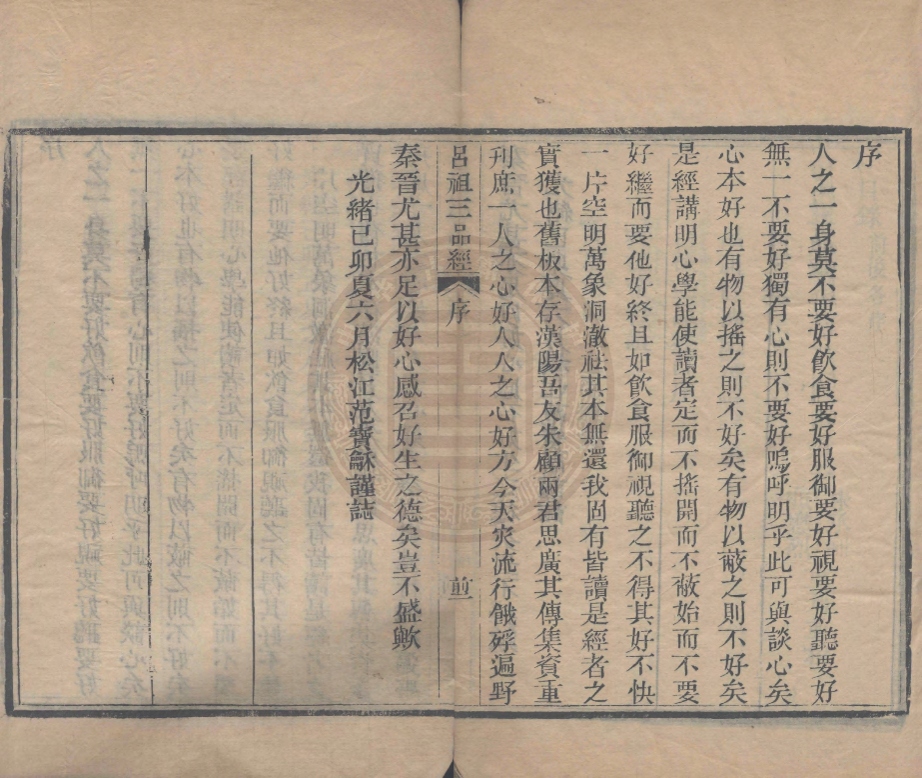 序
人之一身莫不要好飲食要好服御要好視要好聽要好
無一不要好獨有心則不要好嗚呼明乎此可與談心矣
心本好也有物以搖之則不好矣有物以蔽之則不好矣
是經講明心學能使讀者定而不搖開而不蔽始而不要
好繼而要他好終且如飲食服御視聽之不得其好不快
一片空明萬象洞澈祛其本無還我固有皆讀是經者之
實獲也舊板本存漢陽吾友朱顧兩君思廣其傳集資重
刋庶一人之心好人人之心好方今天灾流行餓殍遍野
呂祖三品經 序
秦晉尤甚亦足以好心感召好生之德矣豈不盛歟
光緒己卯夏六月松江范寶龢謹誌